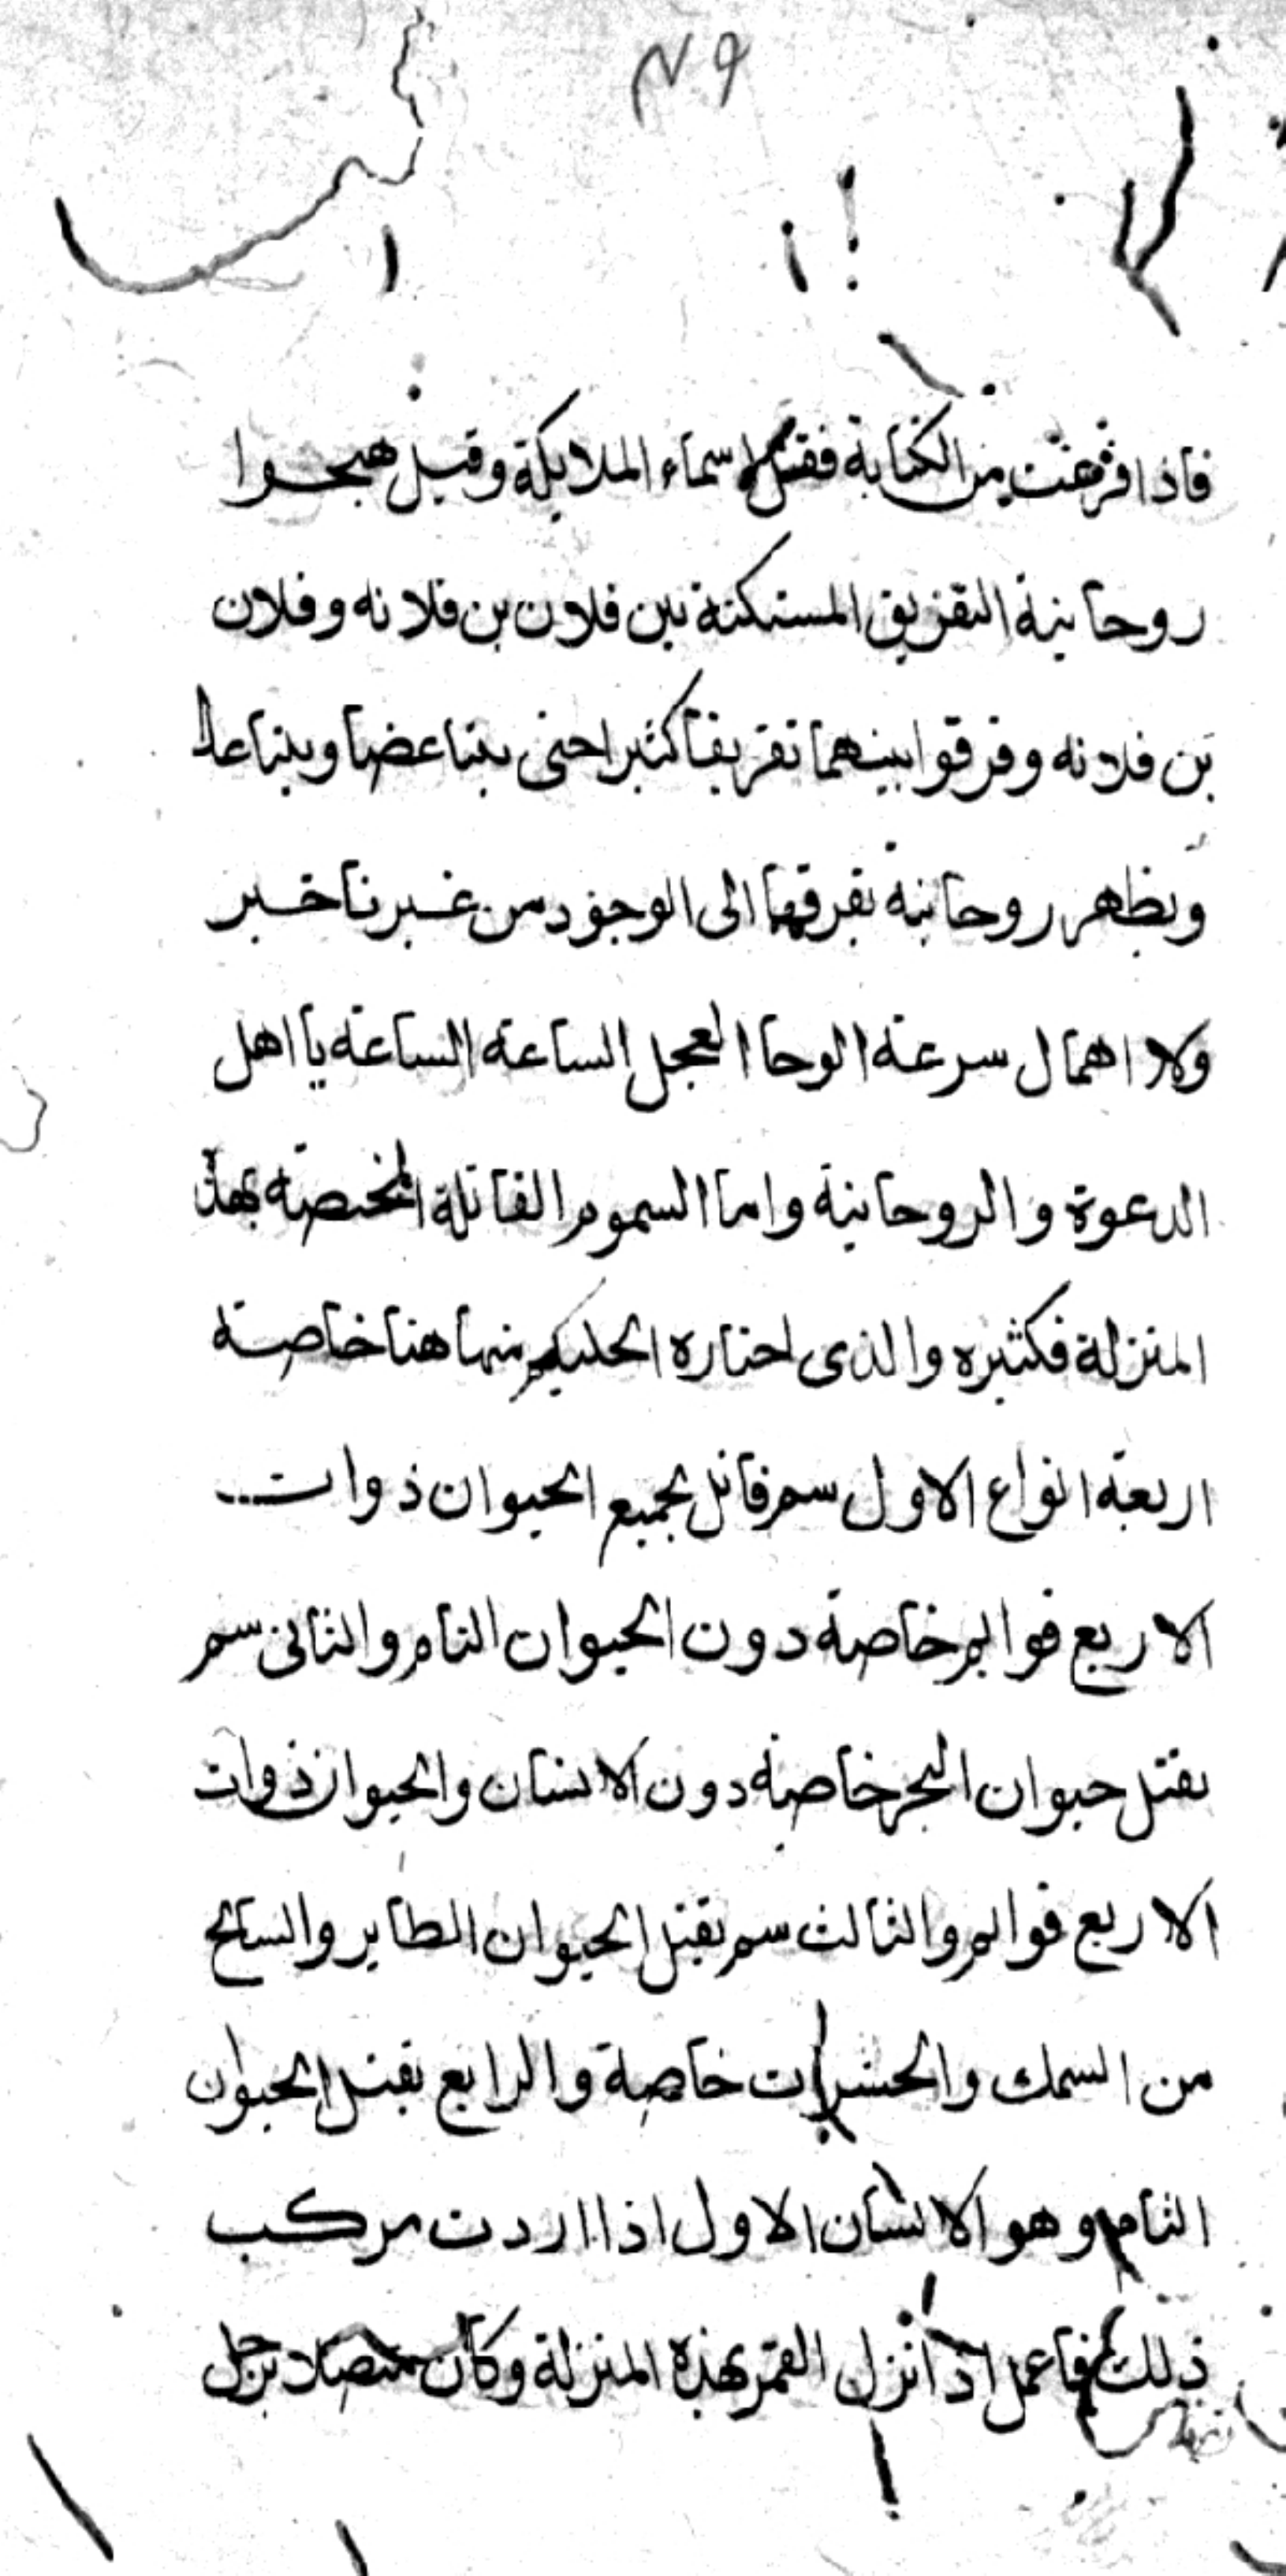 فاذا فرغت من الكتابة فقل اسماء الملايكة وقيل هيجوا
روحانية التفريق المستكنة بين فلان بن فلانه وفلان
بن فلانه وفرقوا بينهما تفريقا كثيرا حتى يتباعضا ويتباعدا
ويظهر روحانية بفرقهما الى الوجود من غير تاخير
ولا اهمال سرعة الوحا العجل الساعة الساعة يا اهل
الدعوة والروحانية واما السموم القاتلة المختصة بهذه
المنزلة فكثيره والذى اختاره الحكيم منها هنا خاصة
اربعة انواع الاول سم قاتل لجميع الحيوان ذوات
الاربع قوايم خاصة دون الحيوان التام والثانى سم
يقتل حيوان البحر خاصة دون الانسان والحيوان ذوات
الاربع قوايم والثالث سم يقتل الحيوان الطاير والسابح
من السمك والحشرات خاصة والرابع يقتل الحيوان
التام وهو الانسان الاول اذا اردت مركب
ذلك فاعمل اذا نزل القمر بهذه المنزلة وكان متصلا بزحل